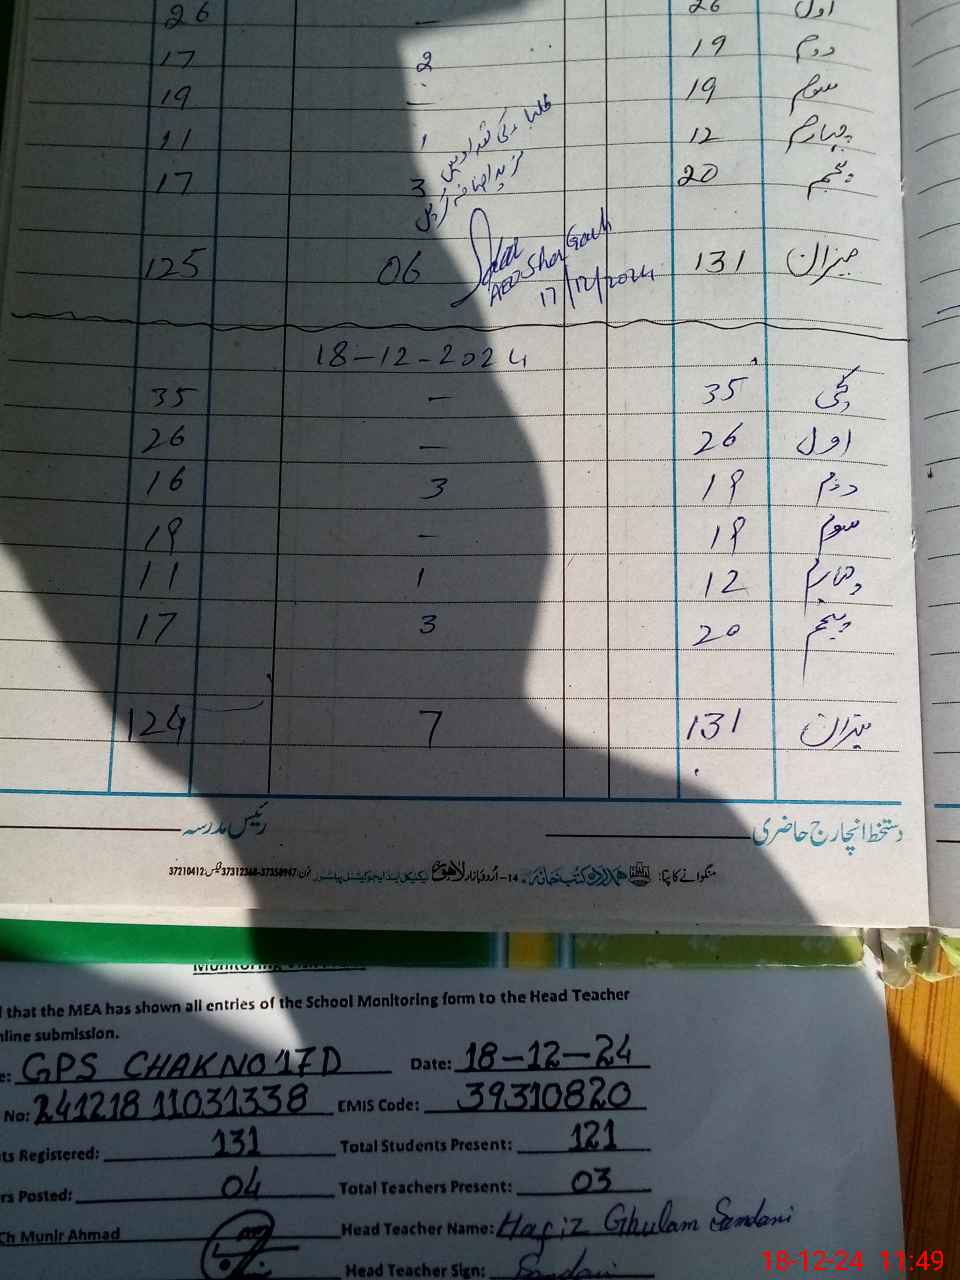 اول 26 – 26
دوم 19 2 17
سوم 19 – 19
چہارم 12 1 11
پنجم 20 3 17
طلباء کی تعداد میں
مزید اضافہ کریں
میزان 131 06 125
AEO Sher Garh
17/12/2024
18-12-2024
کچی 35 – 35
اول 26 – 26
دوم 19 3 16
سوم 19 – 19
چہارم 12 1 11
پنجم 20 3 17
میزان 131 7 124
دستخط انچارج حاضری رئیس مدرسہ
منگوانے کا پتا: ہمدرد کتب خانہ 14-اُردو بازار لاہور فون: 37312368-37358947 فیکس: 37210412
that the MEA has shown all entries of the School Monitoring form to the Head Teacher
nline submission.
e: GPS CHAK NO 17D Date: 18-12-24
No: 241218 11031338 EMIS Code: 39310820
ts Registered: 131 Total Students Present: 121
rs Posted: 04 Total Teachers Present: 03
Ch Munir Ahmad Head Teacher Name: Hafiz Ghulam Samdani
Head Teacher Sign: Samdani
18-12-24 11:49